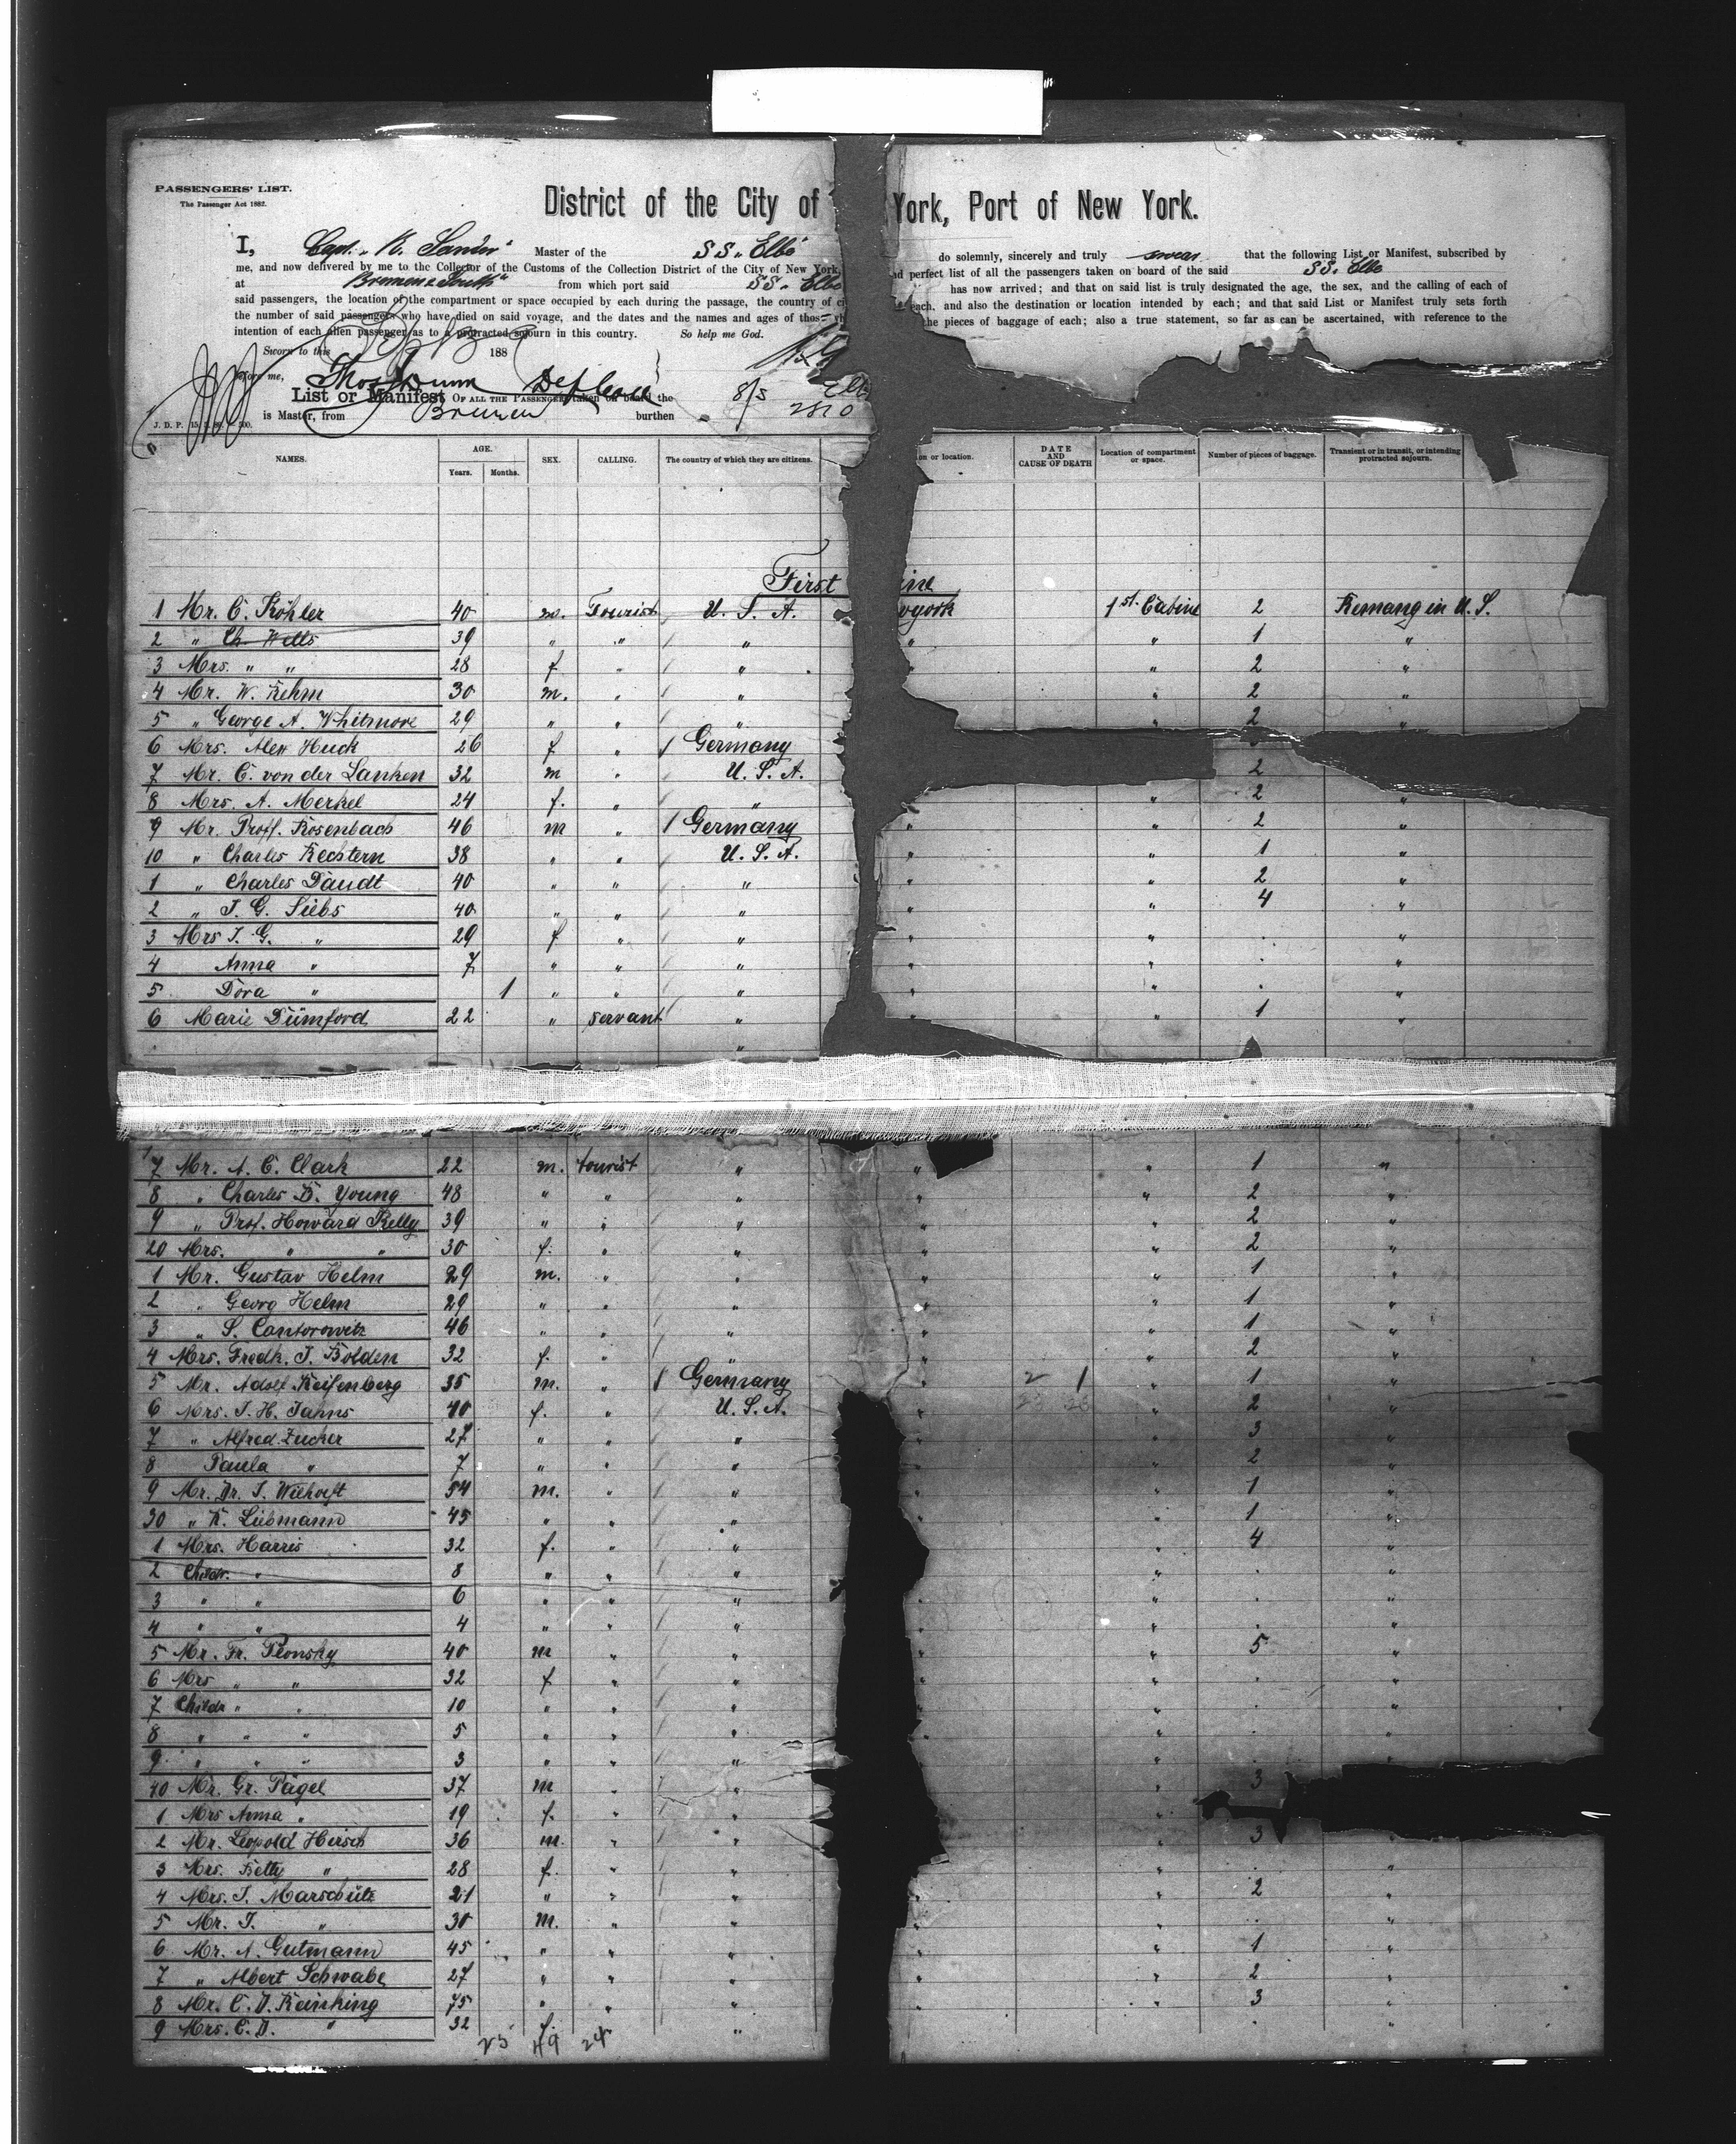 PASSENGERS' LIST.
The Passenger Act 1882.
District of the City of York, Port of New York.
I, Capt. "K. Sander" Master of the SS. "Elbe" do solemnly, sincerely and truly swear that the following List or Manifest, subscribed by
me, and now delivered by me to the Collector of the Customs of the Collection District of the City of New York, perfect list of all the passengers taken on board of the said SS. Elbe
at from which port said SS. Elbe has now arrived; and that on said list is truly designated the age, the sex, and the calling of each of
said passengers, the location of the compartment or space occupied by each during the passage, the country of each, and also the destination or location intended by each; and that said List or Manifest truly sets forth
the number of said passengers who have died on said voyage, and the dates and the names and ages of the pieces of baggage of each; also a true statement, so far as can be ascertained, with reference to the
intention of each alien passenger as to a protracted sojourn in this country. So help me God.
Sworn to this 188
before me,
List or Manifest OF ALL THE PASSENGERS taken on board the
is Master, from Bremen burthen
NAMES. AGE. Years. Months. SEX. CALLING. The country of which they are citizens. or location. DATE AND CAUSE OF DEATH Location of compartment or space. Number of pieces of baggage. Transient or in transit, or intending protracted sojourn.
First
1 Mr. C. Köhler 40 m. Tourist U. S. A. york 1st Cabine 2 Remang in U. S.
2 " Ch. Wells 39 " " " " " 1 "
3 Mrs. " " 28 f " " " " 2 "
4 Mr. W. Rehm 30 m. " " " " 2 "
5 " George A. Whitmore 29 " " " " 2 "
6 Mrs. Alex Huck 26 f " Germany
7 Mr. C. von der Lanken 32 m " U. S. A. 2
8 Mrs. A. Merkel 24 f. " " " 2 "
9 Mr. Proff. Rosenbach 46 m " Germany " " 2 "
10 " Charles Rechtern 38 " " U. S. A. " " 1 "
1 " Charles Daudt 40 " " " " " 2 "
2 " J. G. Siebs 40 " " " " " 4 "
3 Mrs J. G. " 29 f " " " " . "
4 Anna " 7 " " " " " . "
5 Dora " 1 " " " " " . "
6 Marie Dümford 22 " servant " " " 1 "
"
7 Mr. A. C. Clark 22 m. tourist " " " 1 "
8 " Charles D. Young 48 " " " " " 2 "
9 " Prof. Howard Kelly 39 " " " " " 2 "
20 Mrs. " " 30 f. " " " " 2 "
1 Mr. Gustav Helm 29 m. " " " " 1 "
2 " Georg Helm 29 " " " " " 1 "
3 " S. Cantorowitz 46 " " " " " 1 "
4 Mrs. Fredk. J. Bolden 32 f. " " " " 2 "
5 Mr. Adolf Reifenberg 35 m. " Germany " 2 1 " 1 "
6 Mrs. J. H. Jahns 40 f. " U. S. A. " " 2 "
7 " Alfred Zucker 27 " " " " " 3 "
8 Paula " 7 " " " " " 2 "
9 Mr. Dr. J. 54 m. " " " " 1 "
30 " K. Liebmann 45 " " " " 1 "
1 Mrs. Harris 32 f. " " " 4 "
2 Childr. " 8 " " " " . "
3 " " 6 " " " " . "
4 " " 4 " " " " . "
5 Mr. Fr. Plonsky 40 m " " " 5 "
6 Mrs " " 32 f " " " " . "
7 Childr " " 10 " " " " " . "
8 " " " 5 " " " " " . "
9 " " " 3 " " " " . "
40 Mr. Gr. Pagel 37 m " " " 3
1 Mrs Anna " 19 f. " " "
2 Mr. Leopold Hirsch 36 m. " " " 3 "
3 Mrs. Betty " 28 f. " " " . "
4 Mrs. J. Marschütz 21 " " " " " 2 "
5 Mr. J. " 30 m. " " " " . "
6 Mr. A. Gutmann 45 " " " " " 1 "
7 " Albert Schwabe 27 " " " " " 2 "
8 Mr. C. D. Reinking 75 " " " " " 3 "
9 Mrs. C. D. " 32 f. " . "
25 49 24